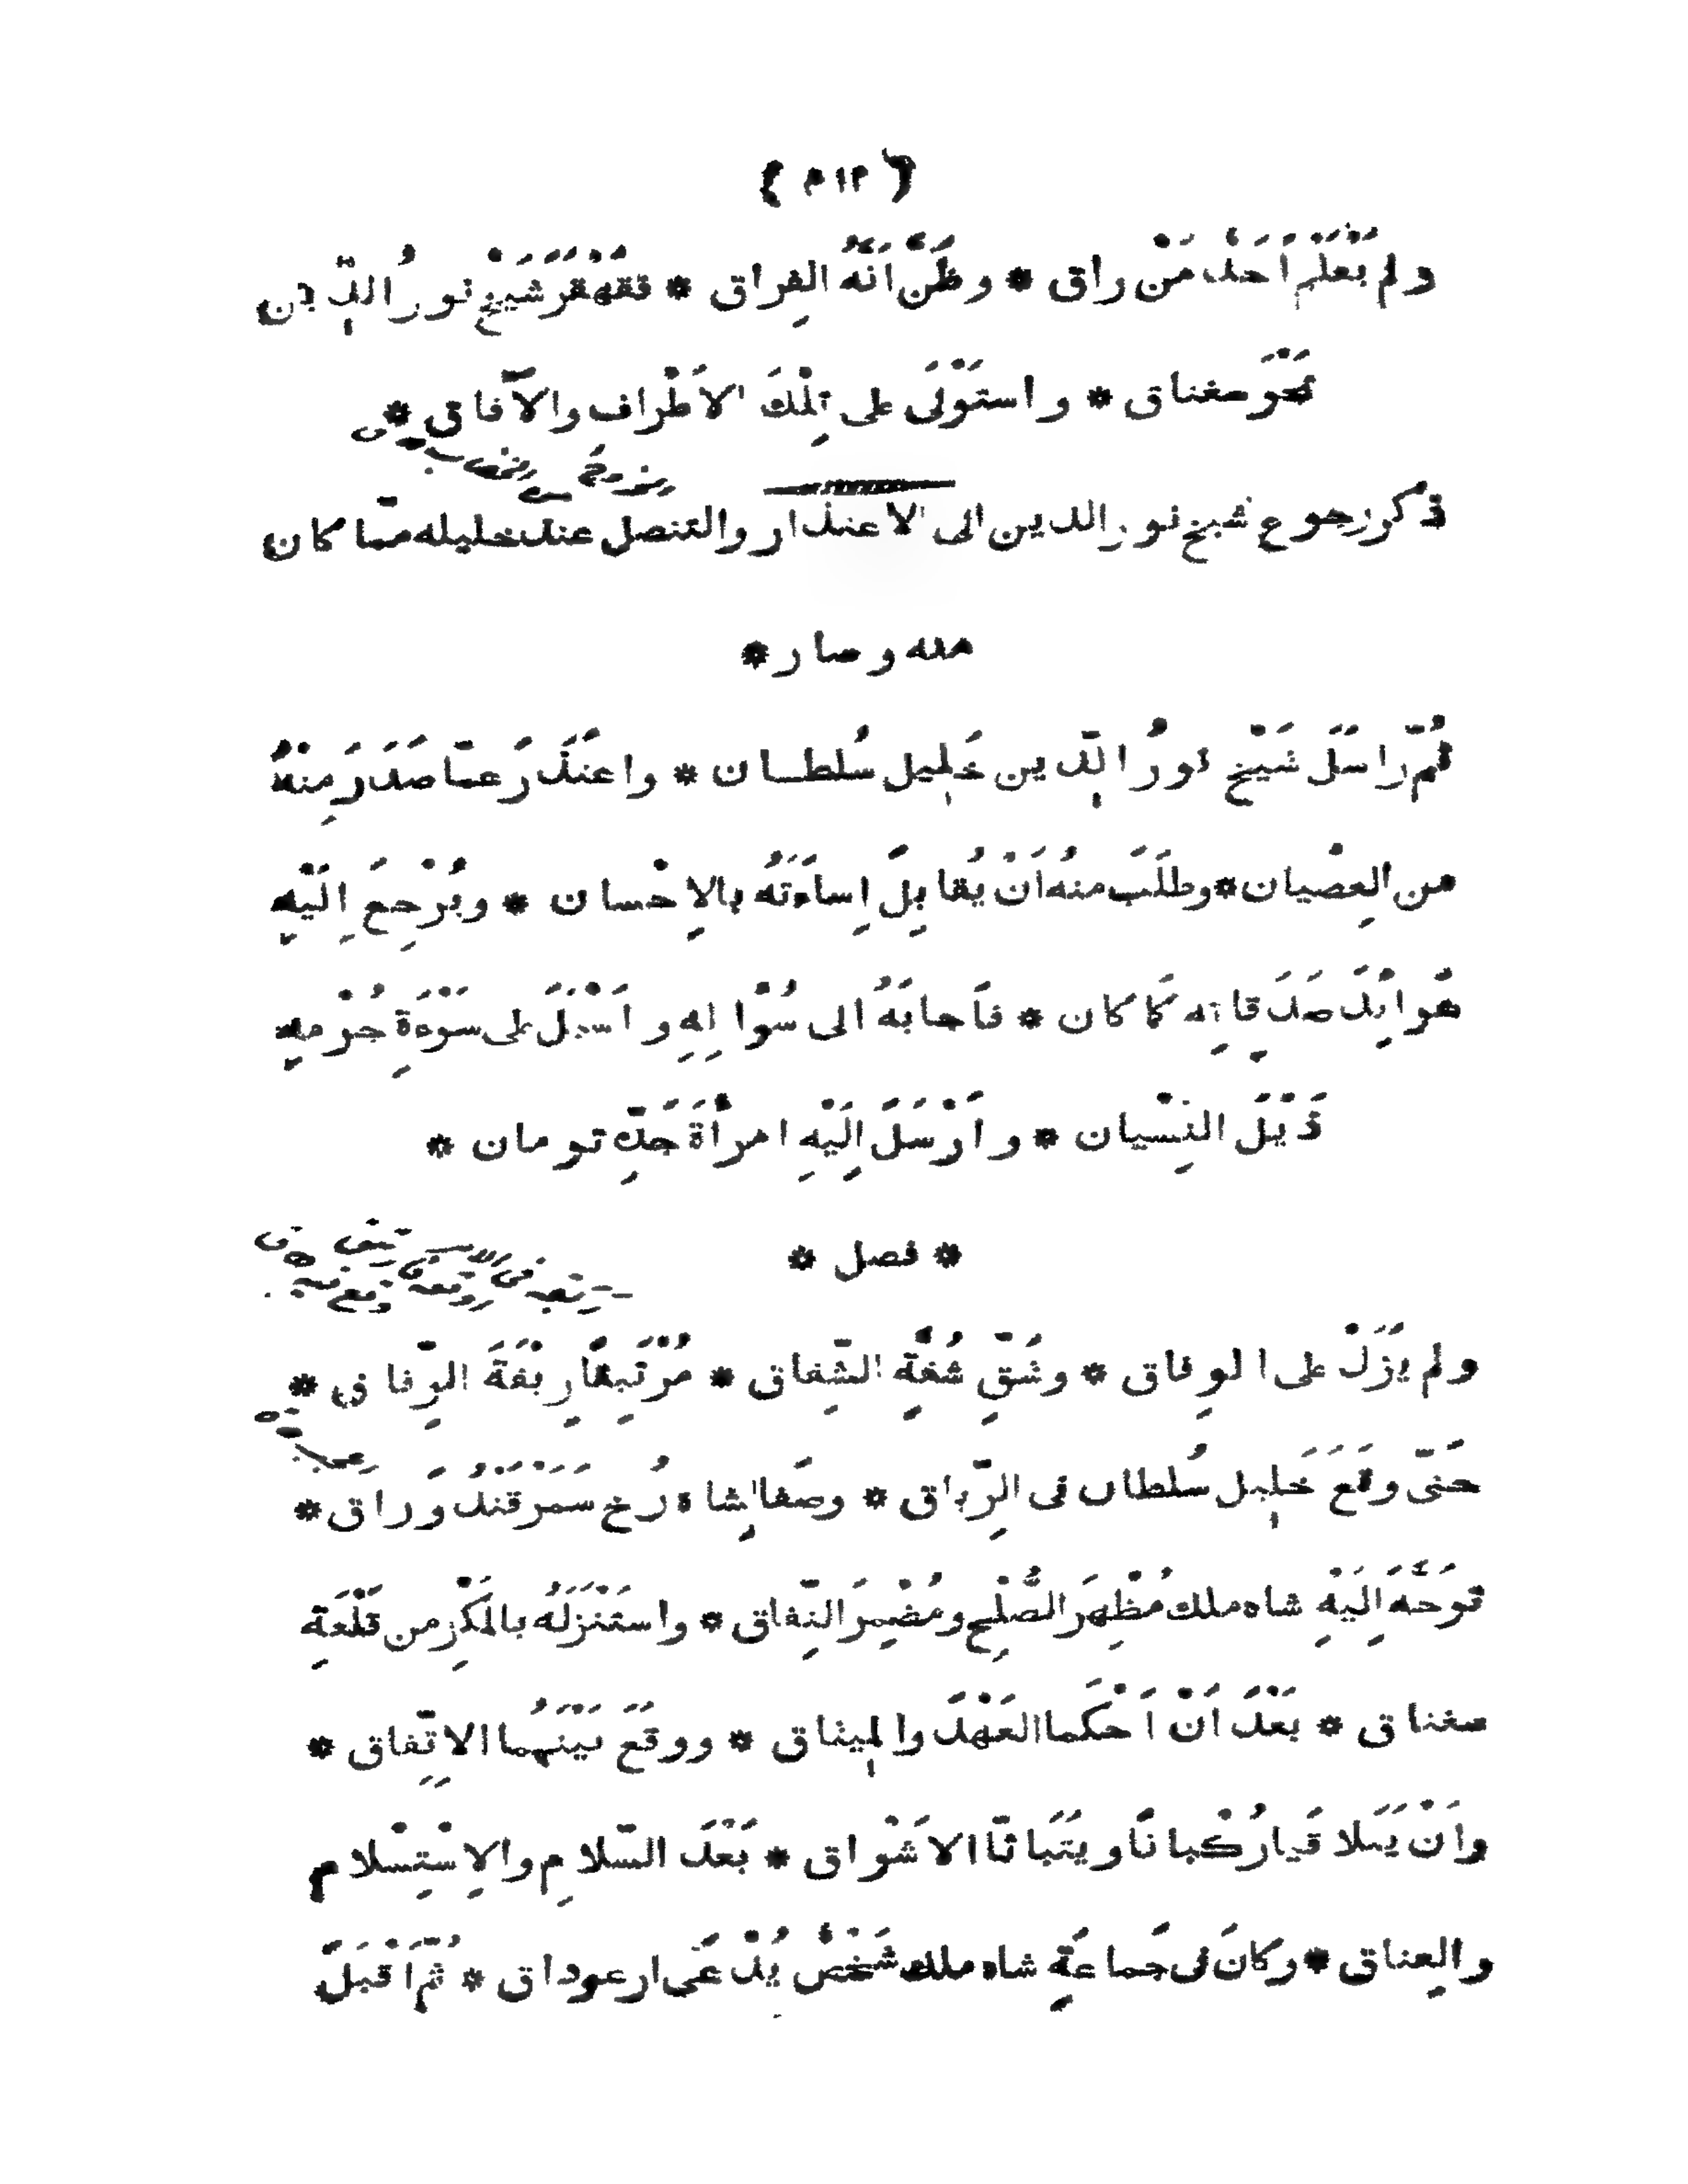 ولم يَعْلَمْ اَحَدٌ مَنْ راق * وظَنَّ اَنَّهُ الفِراق * فقَهْقَرَ شَيْخُ نورُ الدِّين
نَحْوَ سغناق * واستَوْلَى على تِلْكَ الاَطْرافِ والآفاق *
ذكر رجوع شيخ نور الدين الى الاعتذار والتنصل عند خليله ممّا كان
منه وصار *
ثُمّ راسَلَ شَيْخُ نورُ الدِّين خَلِيل سُلطان * واعتَذَرَ عمّا صَدَرَ مِنْهُ
من العِصْيان * وطَلَبَ منهُ اَنْ يُقابِلَ اِساءَتَهُ بالاِحْسان * ويُرْجِعَ اِلَيْهِ
عَوائِدَ صَدَقاتِه كَما كان * فاَجابَهُ الى سُؤالِهِ واَسْبَلَ على سَوْءَةِ جُرْمِهِ
ذَيْلَ النِسْيان * واَرْسَلَ اِلَيْهِ امرأةَ جَدِّه تومان *
* فصل *
ولم يَزَلْ على الوِفاق * وشَقِّ شُقَّةِ الشِّقاق * مُرْتَبِقًا رِبْقَةَ الرِّفاق *
حَتّى وقَعَ خَلِيل سُلطان فى الرِّباق * وصَفا لِشاه رُخ سَمَرْقَنْدُ وَراق *
تَوَجَّهَ اِلَيْهِ شاه ملك مُظْهِرَ الصُّلْحِ ومُضْمِرَ النِّفاق * واستَنْزَلَهُ بالمَكْرِ من قَلْعَةِ
سغناق * بَعْدَ اَنْ اَحْكَما العَهْدَ والمِيثاق * ووقَعَ بَيْنَهُما الاتِّفاق *
واَنْ يَتَلاقَيا رُكْبانًا ويَتَباثّا الاَشْواق * بَعْدَ السّلامِ والاِسْتِسْلام
والعِناق * وكانَ فى جَماعَةِ شاه ملك شَخْصٌ يُدْعَى ارعوداق * ثُمّ اَقْبَلَ